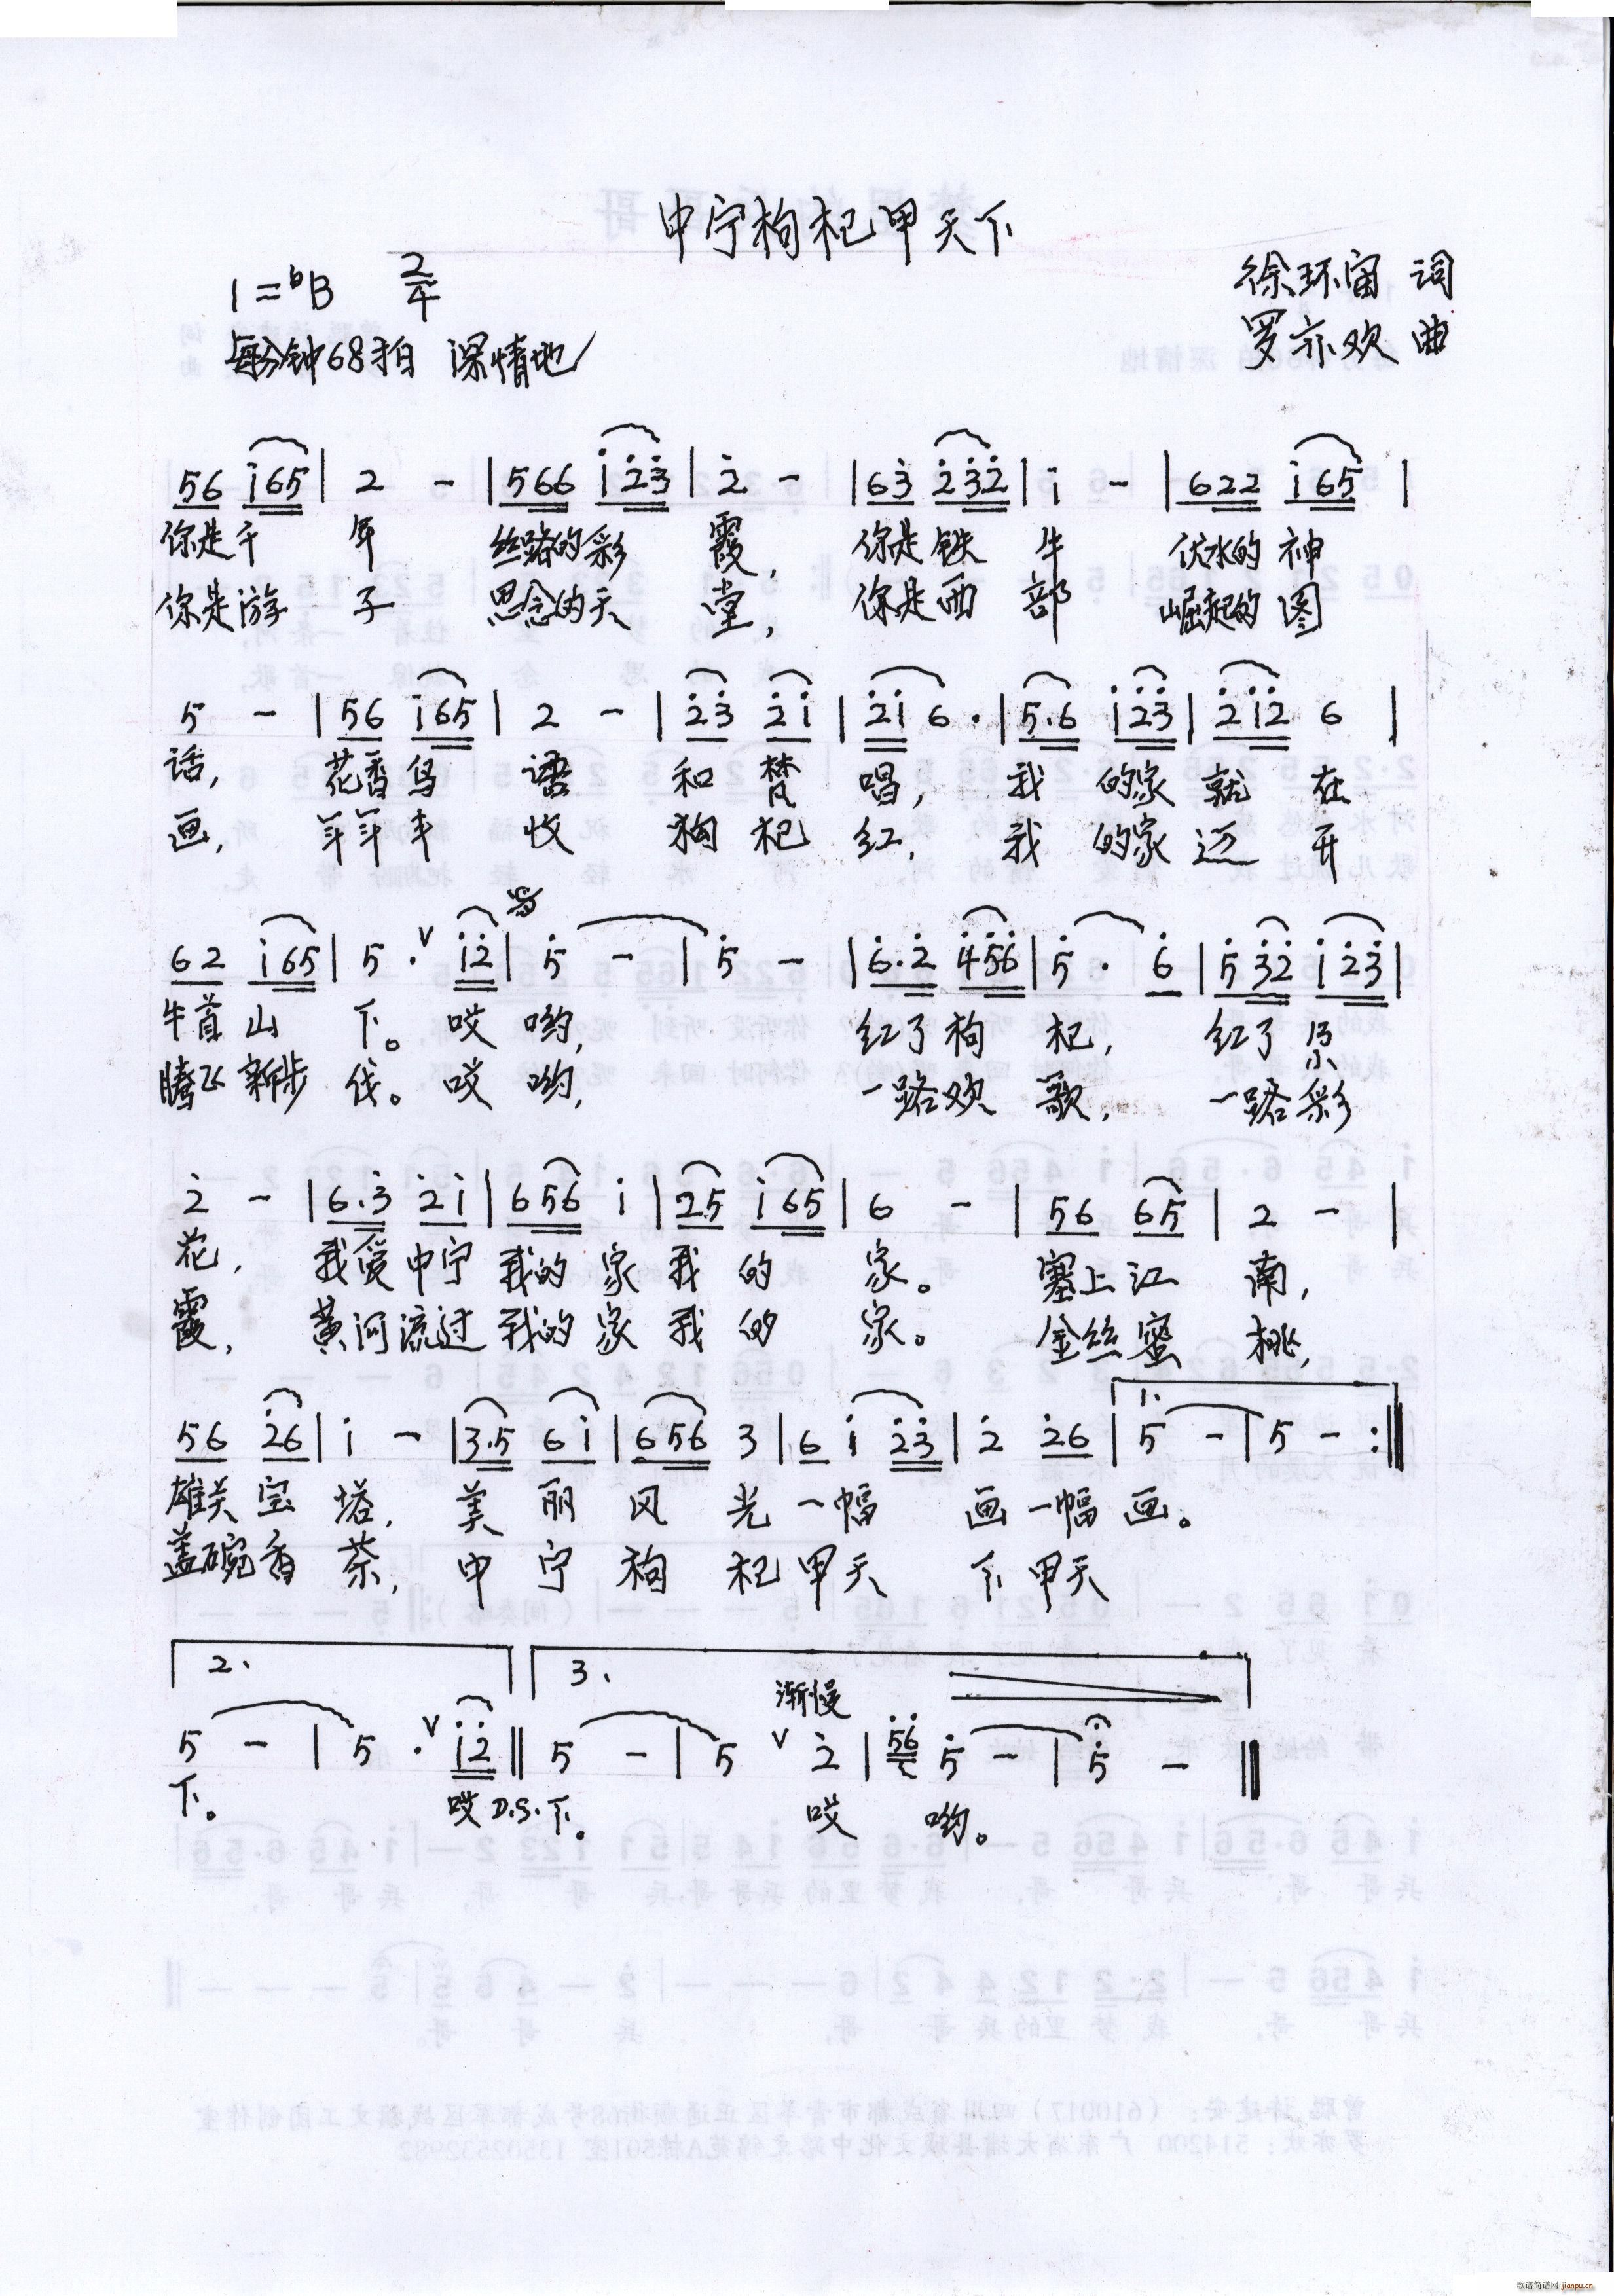 中宁枸杞甲天下
1=♭B 2/4 徐环宙 词
每分钟68拍 深情地 罗亦欢 曲
56 i65 | 2 - | 566 i23 | 2 - | 63 232 | i - | 622 i65 |
你是千 年 丝路的彩 霞, 你是铁 牛 伏水的 神
你是游 子 思念的天 堂, 你是西 部 崛起的 图
5 - | 56 i65 | 2 - | 23 2i | 2i 6 · | 5.6 i23 | 2i2 6 |
话, 花香鸟 语 和 梵 唱, 我 的家 就 在
画, 年年丰 收 枸 杞 红, 我 的家 迈 开
62 i65 | 5 · V i2 | 5 - | 5 - | 6.2 456 | 5 · 6 | 532 i23 |
牛首 山 下。 哎 哟, 红了 枸 杞, 红了
腾飞 新步 伐。 哎 哟, 一路欢 歌, 一路 彩
2 - | 6.3 2i | 656 i | 25 i65 | 6 - | 56 65 | 2 - |
花, 我爱中宁 我的 家 我 的 家。 塞上江 南,
霞, 黄河流过 我的 家 我 的 家。 金丝蜜 桃,
56 26 | i - | 3.5 6i | 656 3 | 6 i 23 | 2 26 | 1. 5 - | 5 - :‖
雄关 宝 塔, 美 丽 风 光 一幅 画 一幅 画。
盖碗香 茶, 中 宁 枸 杞 甲天 下 甲天
2. 3.
渐慢
5 - | 5 · V i2 ‖ 5 - | 5 V 2 | 56 5 - | 5 - ‖
下。 哎 D.S. 下。 哎 哟。
歌谱简谱网 jianpu.cn